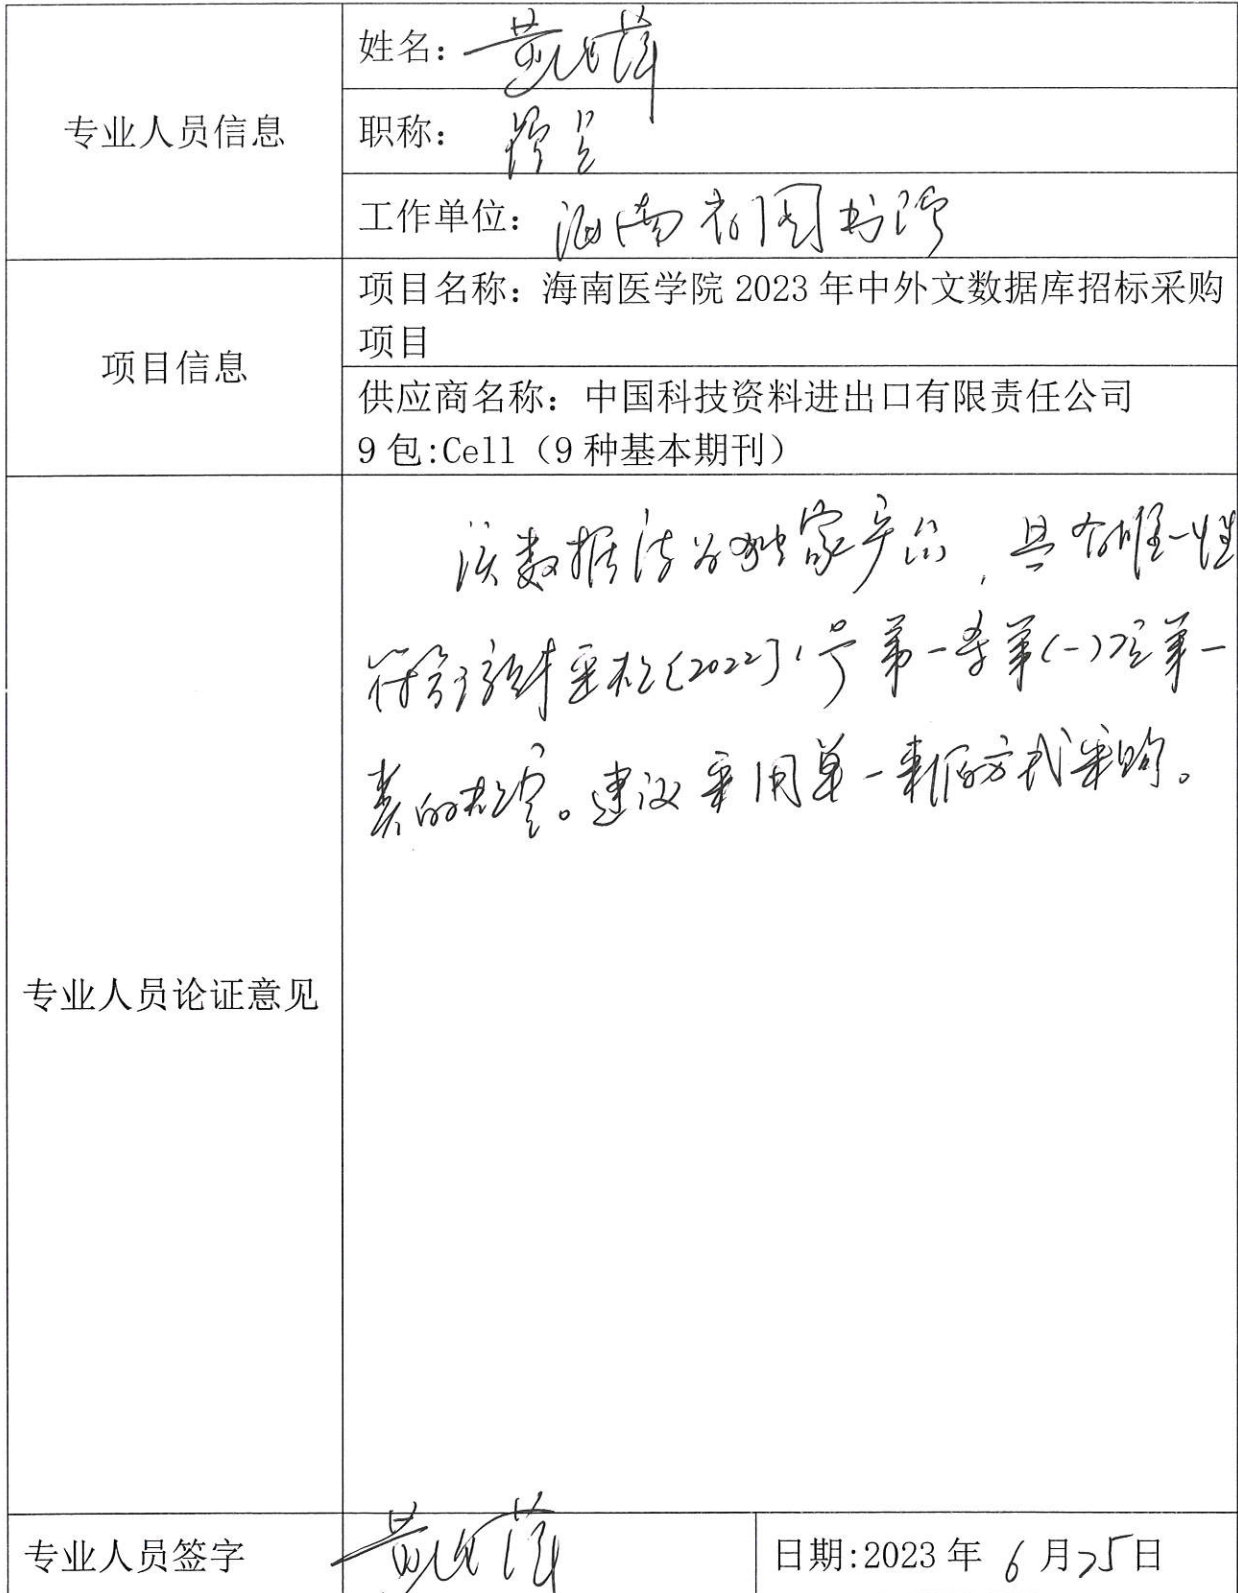 专业人员信息
姓名：黄
职称：馆员
工作单位：海南省图书馆
项目信息
项目名称：海南医学院 2023 年中外文数据库招标采购
项目
供应商名称：中国科技资料进出口有限责任公司
9 包:Cell（9 种基本期刊）
专业人员论证意见
该数据库为独家产品，具有唯一性
符合琼财采规〔2022〕1号第一条第(一)项第一
类的规定。建议采用单一来源方式采购。
专业人员签字
黄
日期:2023 年 6 月 25 日